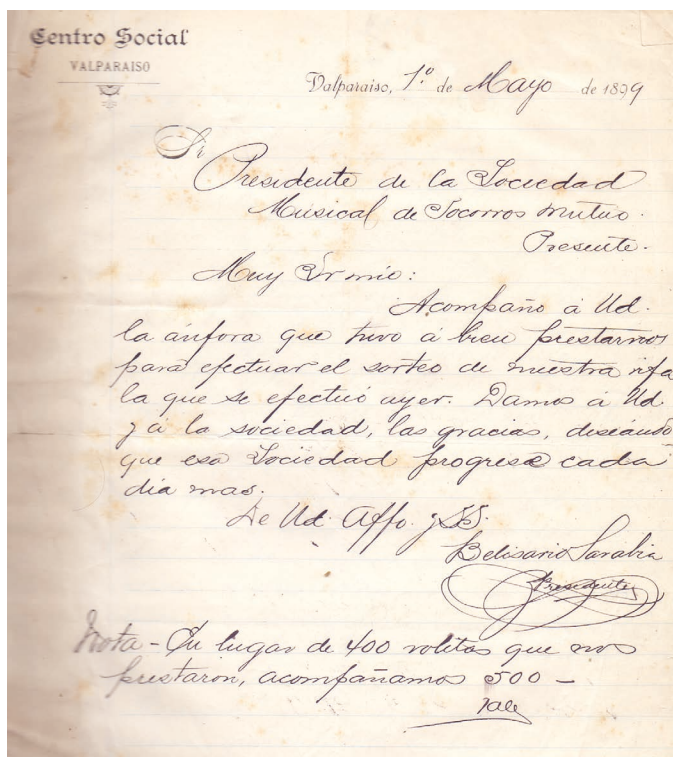 Centro Social
VALPARAISO
Valparaiso, 1.º de Mayo de 1899
Sr
Presidente de la Sociedad
Musical de Socorros Mutuo.
Presente.
Muy Sr mio:
Acompaño á Ud.
la ánfora que tuvo á bien prestarnos
para efectuar el sorteo de nuestra rifa
la que se efectuó ayer. Damos á Ud.
y á la sociedad, las gracias, deseando
que esa Sociedad progrese cada
dia mas.
De Ud. Affo. y SS.
Belisario Sarabia
Presidente
Nota - En lugar de 400 bolitas que nos
prestaron, acompañamos 500 -
Vale